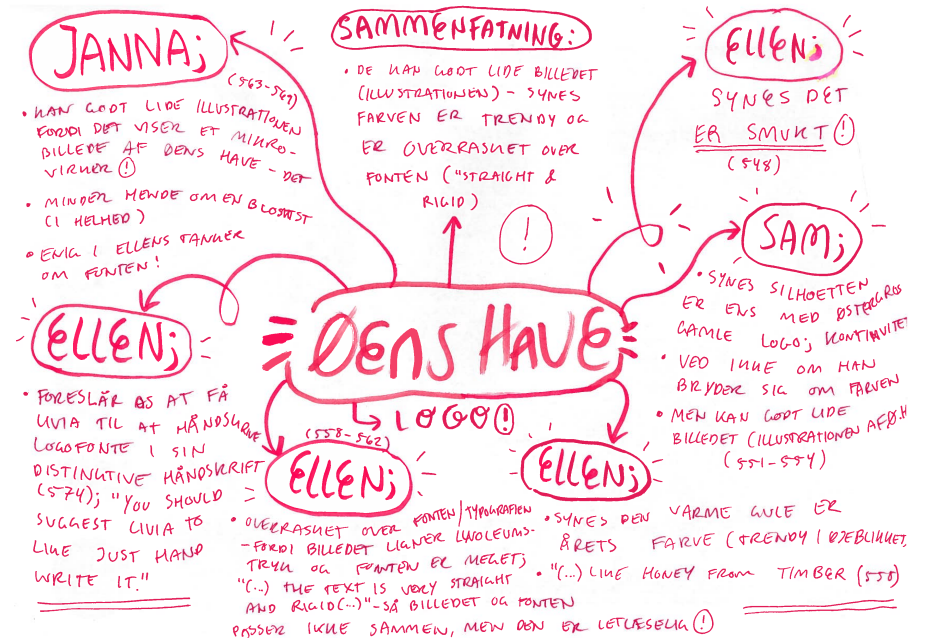 JANNA;
(563-569)
• KAN GODT LIDE ILLUSTRATIONEN
FORDI DET VISER ET MIKRO-
BILLEDE AF ØENS HAVE - DET
VIRKER !
• MINDER HENDE OM EN BLOMST
(I HELHED)
• ENIG I ELLENS TANKER
OM FONTEN!
SAMMENFATNING:
• DE KAN GODT LIDE BILLEDET
(ILLUSTRATIONEN) - SYNES
FARVEN ER TRENDY OG
ER OVERRASKET OVER
FONTEN ("STRAIGHT &
RIGID)
!
ELLEN;
SYNES DET
ER SMUKT !
(548)
SAM;
• SYNES SILHOETTEN
ER ENS MED ØSTERGROS
GAMLE LOGO; KONTINUITET
• VED IKKE OM HAN
BRYDER SIG OM FARVEN
• MEN KAN GODT LIDE
BILLEDET (ILLUSTRATIONEN AF Ø.H
(551-554)
ØENS HAVE
LOGO!
ELLEN;
• FORESLÅR OS AT FÅ
LIVIA TIL AT HÅNDSKRIVE
LOGOFONTE I SIN
DISTINKTIVE HÅNDSKRIFT
(574); "YOU SHOULD
SUGGEST LIVIA TO
LIKE JUST HAND
WRITE IT."
(558-562)
ELLEN;
• OVERRASKET OVER FONTEN/TYPOGRAFIEN
- FORDI BILLEDET LIGNER LINOLEUMS-
TRYK OG FONTEN ER MEGET;
"(...) THE TEXT IS VERY STRAIGHT
AND RIGID(...)" - SÅ BILLEDET OG FONTEN
PASSER IKKE SAMMEN, MEN DEN ER LETLÆSELIG !
ELLEN;
• SYNES DEN VARME GULE ER
ÅRETS FARVE (TRENDY I ØJEBLIKKET,
• "(...) LIKE HONEY FROM TIMBER (550)